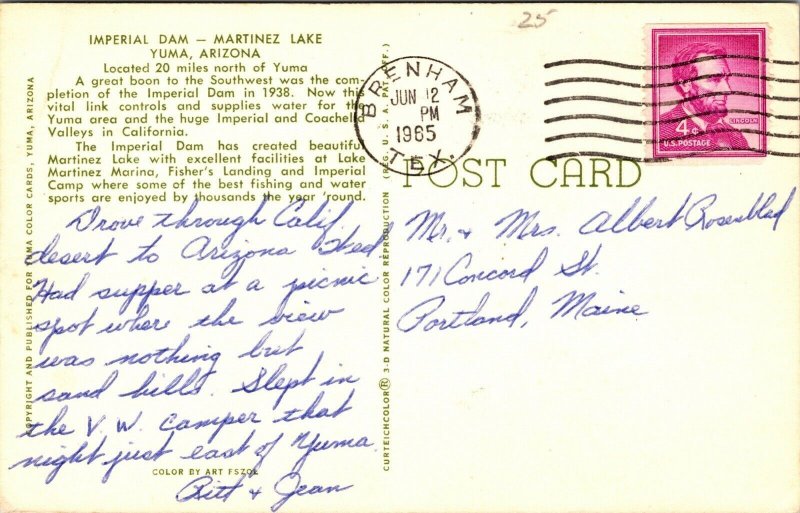 25
IMPERIAL DAM — MARTINEZ LAKE
YUMA, ARIZONA
Located 20 miles north of Yuma
A great boon to the Southwest was the com-
pletion of the Imperial Dam in 1938. Now this
vital link controls and supplies water for the
Yuma area and the huge Imperial and Coachella
Valleys in California.
The Imperial Dam has created beautiful
Martinez Lake with excellent facilities at Lake
Martinez Marina, Fisher's Landing and Imperial
Camp where some of the best fishing and water
sports are enjoyed by thousands the year 'round.
Drove through Calif.
desert to Arizona Wed.
Had supper at a picnic
spot where the view
was nothing but
sand hills. Slept in
the V.W. camper that
night just east of Yuma
& Jean
COLOR BY ART
COPYRIGHT AND PUBLISHED FOR YUMA COLOR CARDS, YUMA, ARIZONA
CURTEICHCOLOR® 3-D NATURAL COLOR REPRODUCTION (REG. U.S.A. PAT. OFF.)
BRENHAM
JUN 12
PM
1965
TEX.
4¢
LINCOLN
U.S. POSTAGE
POST CARD
Mr. & Mrs. Albert Rosenblad
171 Concord St.
Portland, Maine